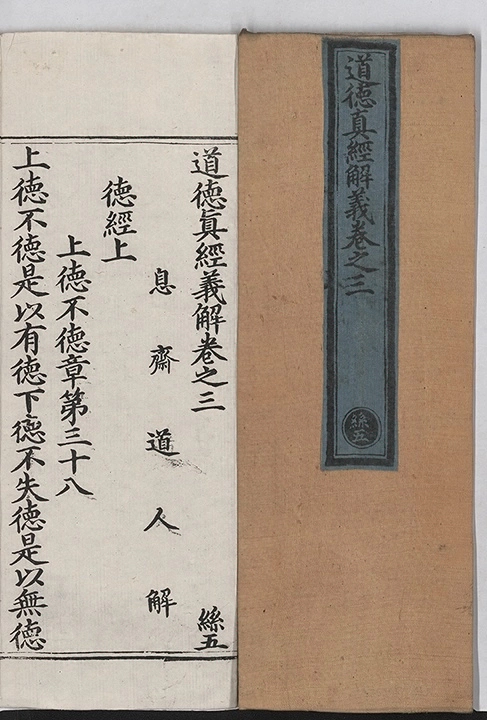 道德真經解義卷之三
絲五
道德眞經義解卷之三
絲五
息齋道人解
德經上
上德不德章第三十八
上德不德是以有德下德不失德是以無德